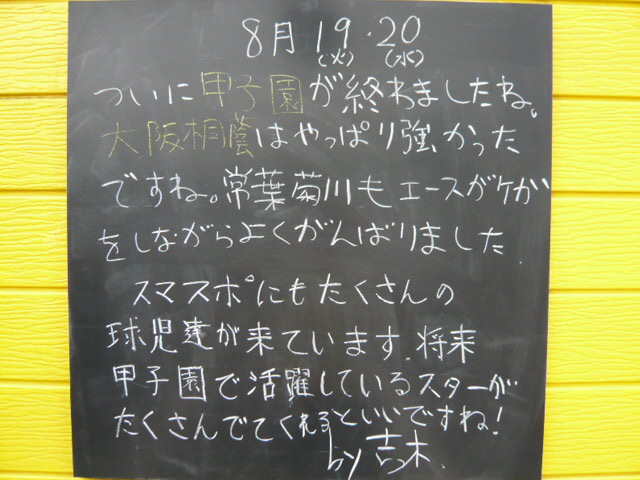 8月19・20
(火)(水)
ついに甲子園が終わましたね。
大阪桐蔭はやっぱり強かった
ですね。常葉菊川もエースがケガ
をしながらよくがんばりました
スマスポにもたくさんの
球児達が来ています。将来
甲子園で活躍しているスターが
たくさんでてくれるといいですね!
by 吉木